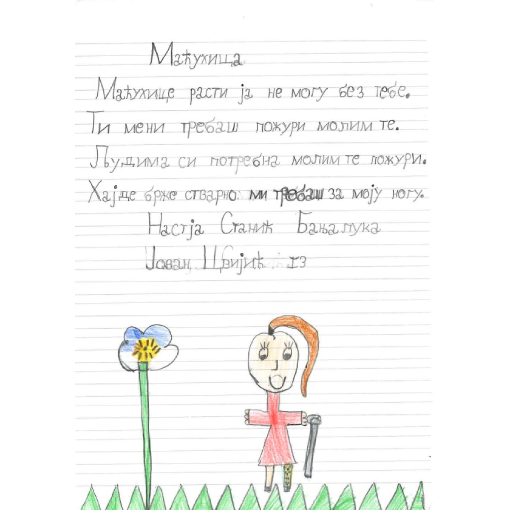 Маћухица
Маћухице расти ја не могу без тебе.
Ти мени требаш пожури молим те.
Људима си потребна молим те пожури.
Хајде брже стварно ми требаш за моју ногу.
Настја Станић Бањалука
Јован Цвијић I3